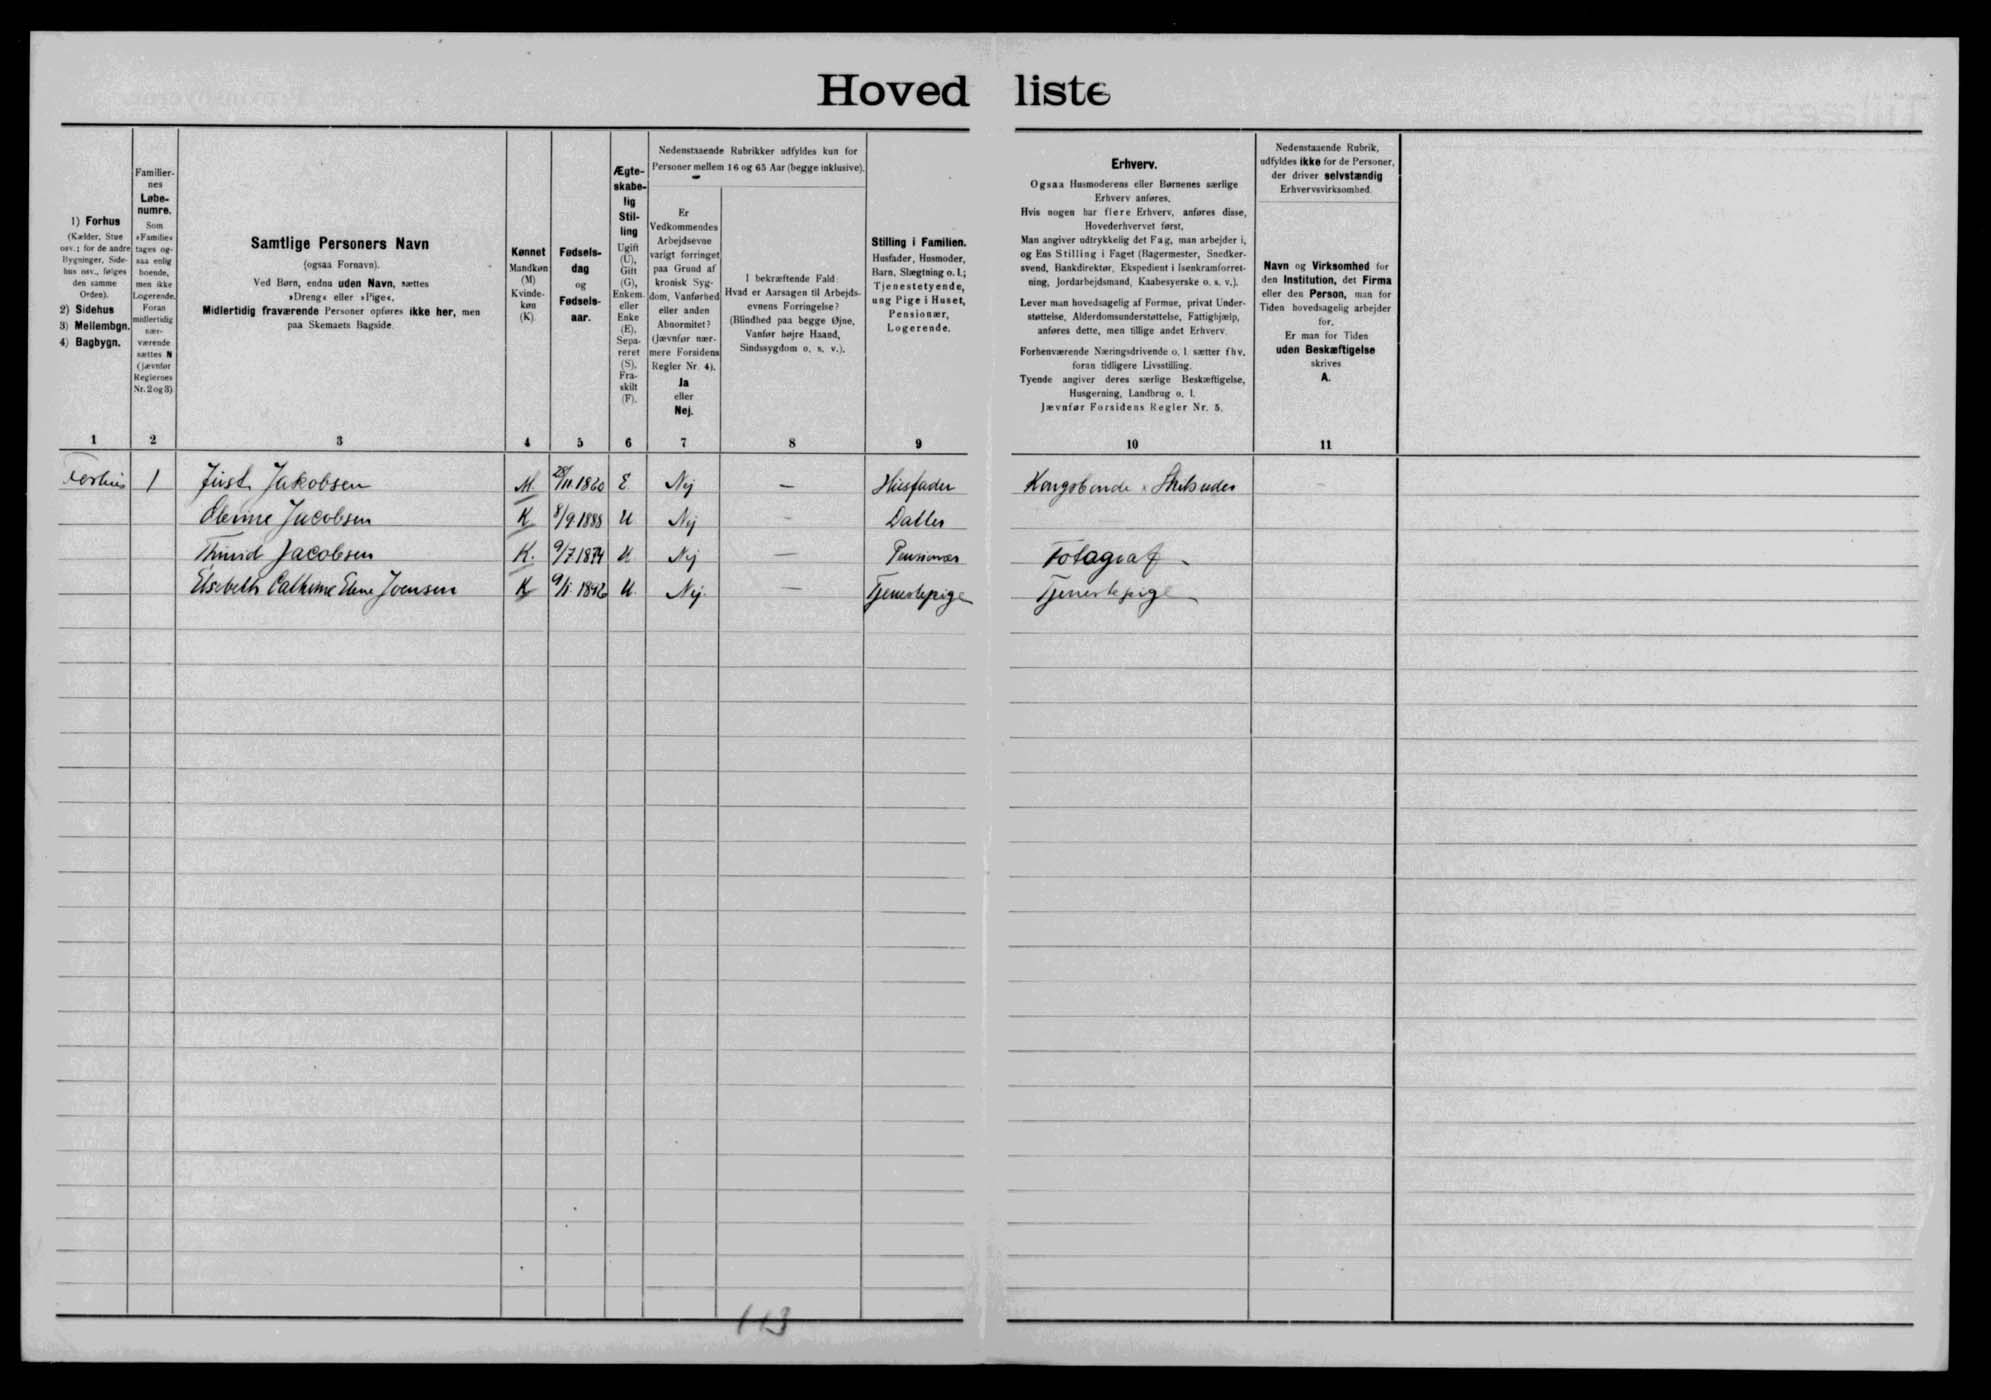 Hovedliste
1) Forhus
(Kælder, Stue
osv.; for de andre
Bygninger, Side-
hus osv., følges
den samme
Orden).
2) Sidehus
3) Mellembgn.
4) Bagbygn.
Familier-
nes
Løbe-
numre.
Som
»Familie«
tages og-
saa enlig
boende,
men ikke
Logerende.
Foran
midlertidig
nær-
værende
sættes N
(jævnfør
Reglernes
Nr. 2 og 3)
Samtlige Personers Navn
(ogsaa Fornavn).
Ved Børn, endna uden Navn, sættes
»Dreng« eller »Pige«.
Midlertidig fraværende Personer opføres ikke her, men
paa Skemaets Bagside.
Kønnet
Mandkøn
(M)
Kvinde-
køn
(K).
Fødsels-
dag
og
Fødsels-
aar.
Ægte-
skabe-
lig
Stil-
ling
Ugift
(U),
Gift
(G),
Enkem.
eller
Enke
(E),
Sepa-
reret
(S),
Fra-
skilt
(F).
Nedenstaaende Rubrikker udfyldes kun for
Personer mellem 16 og 65 Aar (begge inklusive).
Er
Vedkommendes
Arbejdsevne
varigt forringet
paa Grund af
kronisk Syg-
dom, Vanførhed
eller anden
Abnormitet?
(Jævnfør nær-
mere Forsidens
Regler Nr. 4).
Ja
eller
Nej.
I bekræftende Fald:
Hvad er Aarsagen til Arbejds-
evnens Forringelse?
(Blindhed paa begge Øjne,
Vanfør højre Haand,
Sindssygdom o. s. v.).
Stilling i Familien.
Husfader, Husmoder,
Barn, Slægtning o. l.;
Tjenestetyende,
ung Pige i Huset,
Pensionær,
Logerende.
Erhverv.
Ogsaa Husmoderens eller Børnenes særlige
Erhverv anføres.
Hvis nogen har flere Erhverv, anføres disse,
Hovederhvervet først.
Man angiver udtrykkelig det Fag, man arbejder i,
og Ens Stilling i Faget (Bagermester, Snedker-
svend, Bankdirektør, Ekspedient i Isenkramforret-
ning, Jordarbejdsmand, Kaabesyerske o. s. v.).
Lever man hovedsagelig af Formue, privat Under-
støttelse, Alderdomsunderstøttelse, Fattighjælp,
anføres dette, men tillige andet Erhverv.
Forhenværende Næringsdrivende o. l. sætter fhv.
foran tidligere Livsstilling.
Tyende angiver deres særlige Beskæftigelse,
Husgerning, Landbrug o. l.
Jævnfør Forsidens Regler Nr. 5.
Nedenstaaende Rubrik,
udfyldes ikke for de Personer,
der driver selvstændig
Erhvervsvirksomhed.
Navn og Virksomhed for
den Institution, det Firma
eller den Person, man for
Tiden hovedsagelig arbejder
for.
Er man for Tiden
uden Beskæftigelse
skrives
A.
1 2 3 4 5 6 7 8 9 10 11
Forhus 1 Just Jakobsen M. 28/11.1860 E Nej — Husfader Kongsbonde
Jacobsen K 8/9.1888 U Nej — Datter
Jacobsen K. 9/7 1874 U. Nej — Pensionær Fotograf
Elsebeth Cathrine Elene Joensen K U. Nej. — Tjenestepige Tjenestepige
113